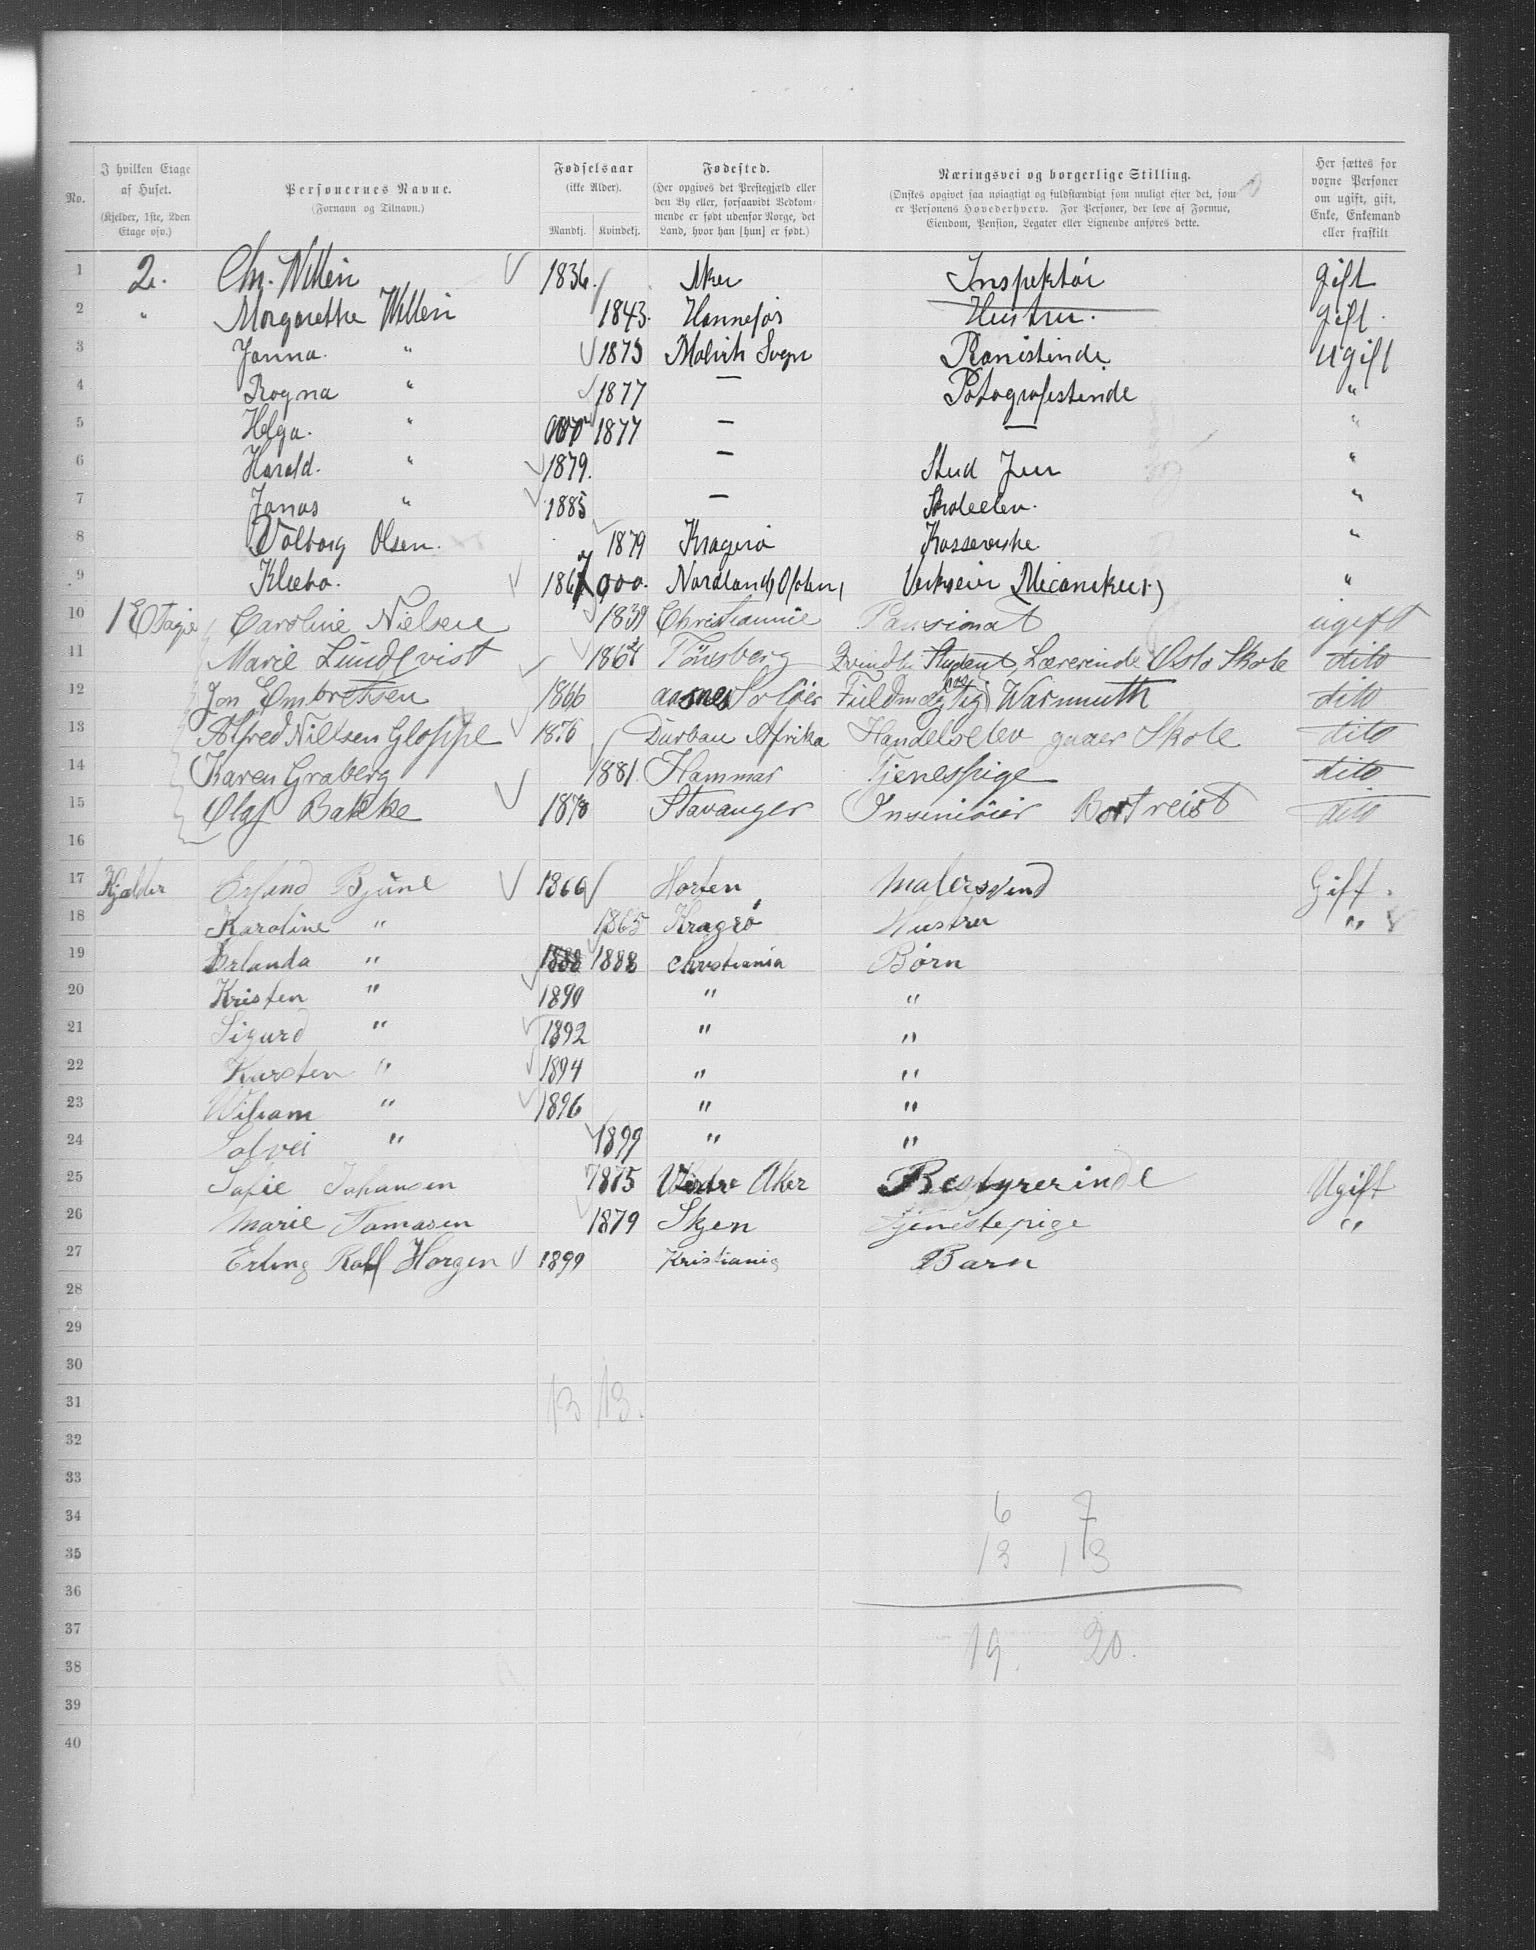 No.
I hvilken Etage af Huset.
(Kjelder, 1ste, 2den Etage osv.)
Personernes Navne.
(Fornavn og Tilnavn.)
Fødselsaar
(ikke Alder).
Mandkj. Kvindekj.
Fødested.
(Her opgives det Prestegjæld eller
den By eller, forsaavidt Vedkom-
mende er født udenfor Norge, det
Land, hvor han [hun] er født.)
Næringsvei og borgerlige Stilling.
(Ønskes opgivet saa nøiagtigt og fuldstændigt som muligt efter det, som
er Personens Hovederhverv. For Personer, der leve af Formue,
Eiendom, Pension, Legater eller Lignende anføres dette.
Her sættes for
voxne Personer
om ugift, gift,
Enke, Enkemand
eller fraskilt
1 2. Chr. Willein 1836 Aker Inspektör gift
2 " Morgarethe Willein 1843. Hustru. gift.
3 Janna. " 1875 Sogn ugift
4 Rogna " 1877 — "
5 Helga. " 1877 — — "
6 Harald. " 1879. — Stud Jur "
7 Jonas " 1885 — Skoleelev. "
8 Valborg Olsen. 1879 Kragerø "
9 "
10 1 Etagie Caroline Nielsen 1839 Christiania Pansionat ugift
11 Marie Lundqvist Tönsberg Student, Lærerinde Oslo Skole dito
12 Jon Embretsen 1866 Warmuth dito
13 Alfred Nielsen Gloppe 1876 Durban Afrika Handelselev gaaer Skole dito
14 Karen Graberg 1881. Hammar Tjenespige dito
15 Olaf Bakke 1878 Stavanger Insiniöier Bortreist dito
16
17 Kjælder Erland Bjune 1866 Horten malersvend Gift.
18 Karoline " 1865 Kragrø Hustru "
19 Erlanda " 1888 1888 Chrstiania Børn
20 Kristen " 1890 " "
21 Sigurd " 1892 " "
22 Karsten " 1894 " "
23 Wiliam " 1896 " "
24 Solvei " 1899 " "
25 Sofie Johansen 1875 Aker Bestyrerinde Ugift
26 Marie Tomasen 1879 Skjen Tjenestepige "
27 Erling Rolf Horgen 1899 Kristiania Barn
28
29
30
31 13 13.
32
33
34 6 7
35 13 13
36
37 19. 20.
38
39
40